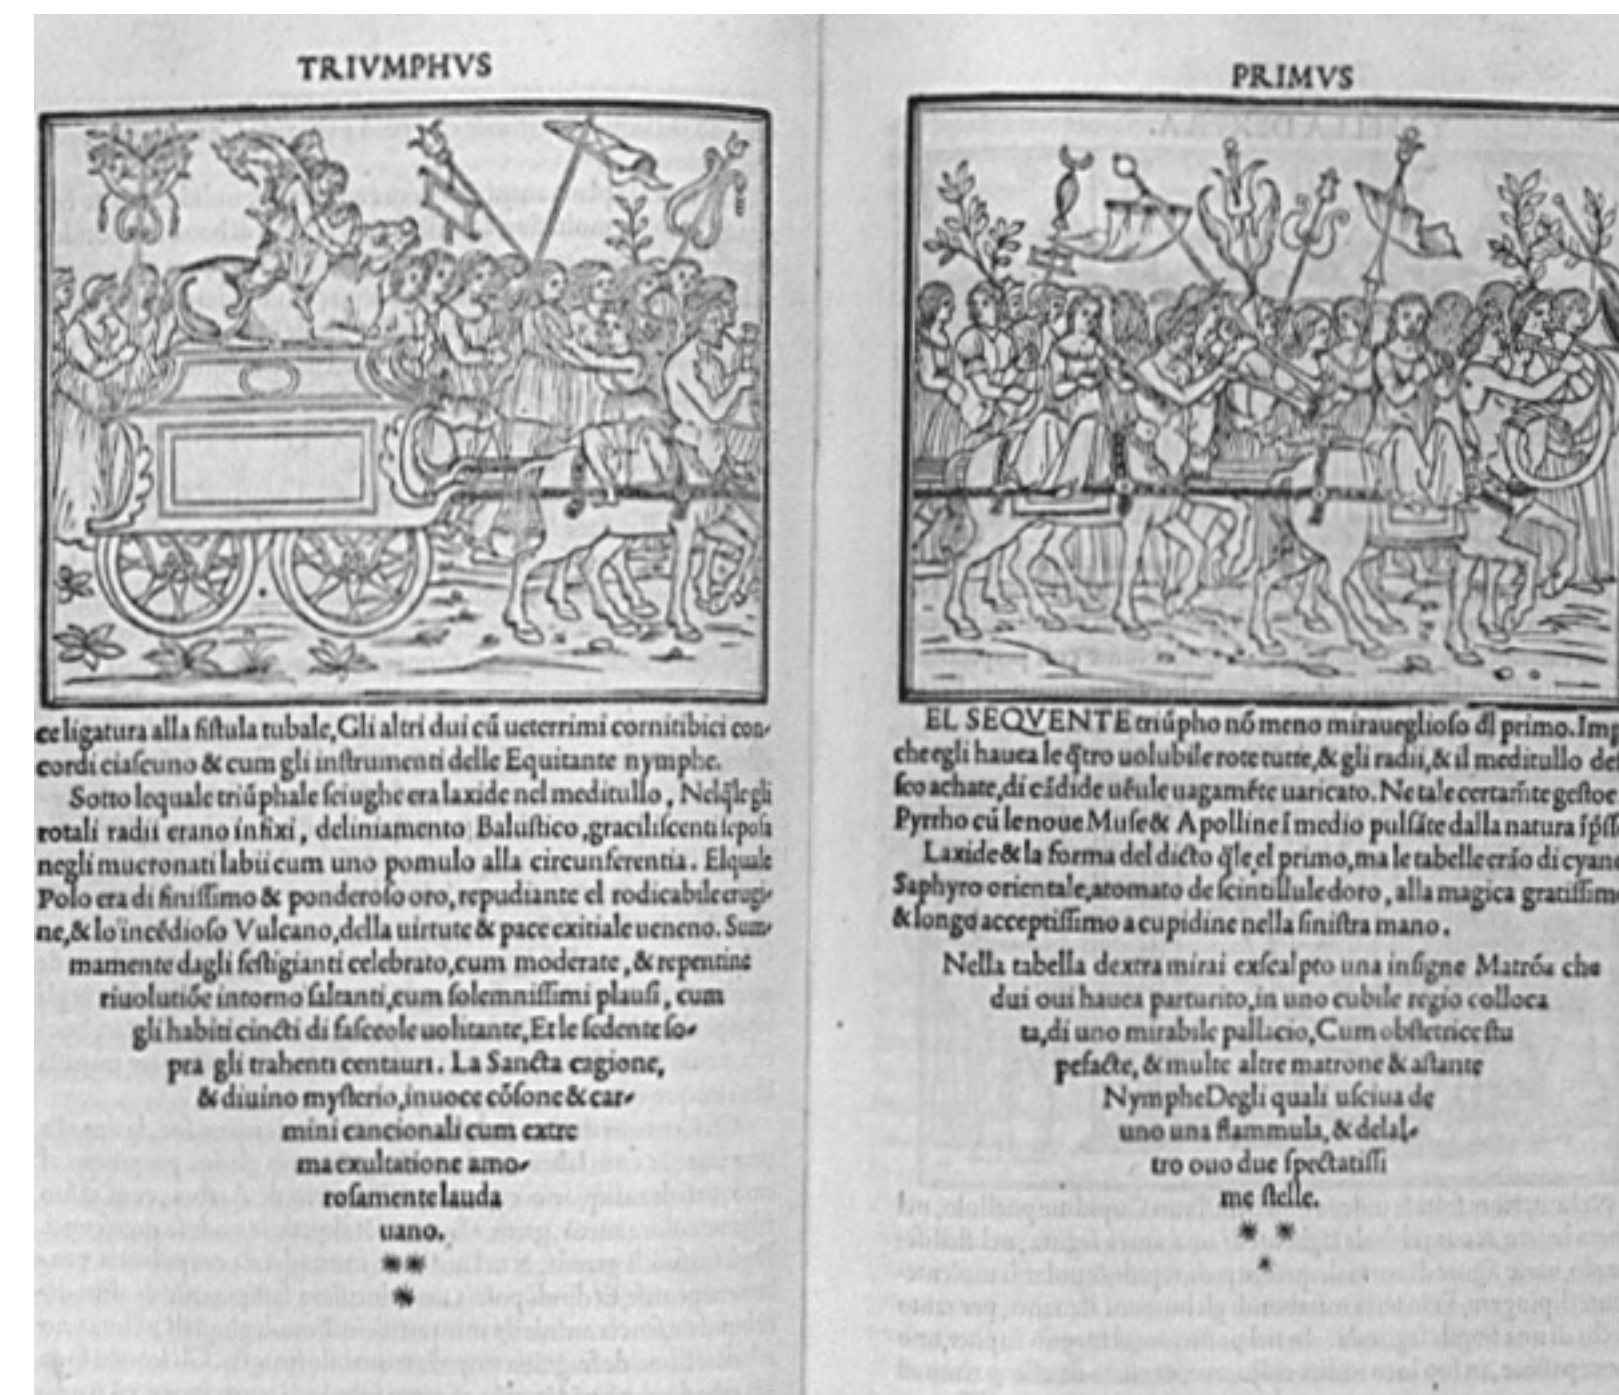 TRIVMPHVS
ce ligatura alla fiſtula tubale, Gli altri dui cũ ueterrimi cornitibici con-
cordi ciaſcuno & cum gli inſtrumenti delle Equitante nymphe.
Sotto lequale triũphale ſeiughe era laxide nel meditullo, Nelq̃le gli
rotali radii erano infixi, deliniamento Baluſtico, graciliſcenti ſepoſa
negli mucronati labii cum uno pomulo alla circunferentia. Elquale
Polo era di finiſſimo & ponderoſo oro, repudiante el rodicabile erugi-
ne, & lo incẽdioſo Vulcano, della uirtute & pace exitiale ueneno. Sum-
mamente dagli feſtigianti celebrato, cum moderate, & repentine
riuolutiõe intorno ſaltanti, cum ſolemniſſimi plauſi, cum
gli habiti cincti di faſceole uolitante, Et le ſedente ſo-
pra gli trahenti centauri. La Sancta cagione,
& diuino myſterio, inuoce cõſone & car-
mini cancionali cum extre
ma exultatione amo-
roſamente lauda
uano.
***
PRIMVS
EL SEQVENTE triũpho nõ meno miraueglioſo dl primo. Imp
che egli hauea le q̃tro uolubile rote tutte, & gli radii, & il meditullo de
ſco achate, di cãdide uẽule uagamẽte uaricato. Ne tale certam̃te geſtoe
Pyrrho cũ le noue Muſe & Apolline ĩ medio pulſãte dalla natura ĩpſſo
Laxide & la forma del dicto q̃le el primo, ma le tabelle erão di cyane
Saphyro orientale, atomato de ſcintillule doro, alla magica gratiſſimo
& longo acceptiſſimo a cupidine nella ſiniſtra mano.
Nella tabella dextra mirai exſcalpto una inſigne Matrõa che
dui oui hauea parturito, in uno cubile regio colloca
ta, di uno mirabile pallacio, Cum obſtetrice ſtu
pefacte, & multe altre matrone & aſtante
Nymphe Degli quali uſciua de
uno una flammula, & delal-
tro ouo due ſpectatiſſi
me ſtelle.
***